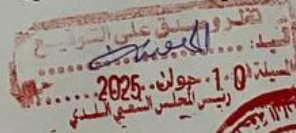 نظر و صدق على التوقيع
السيد:
المسيلة 01 جولن 2025
رئيس المجلس الشعبي البلدي